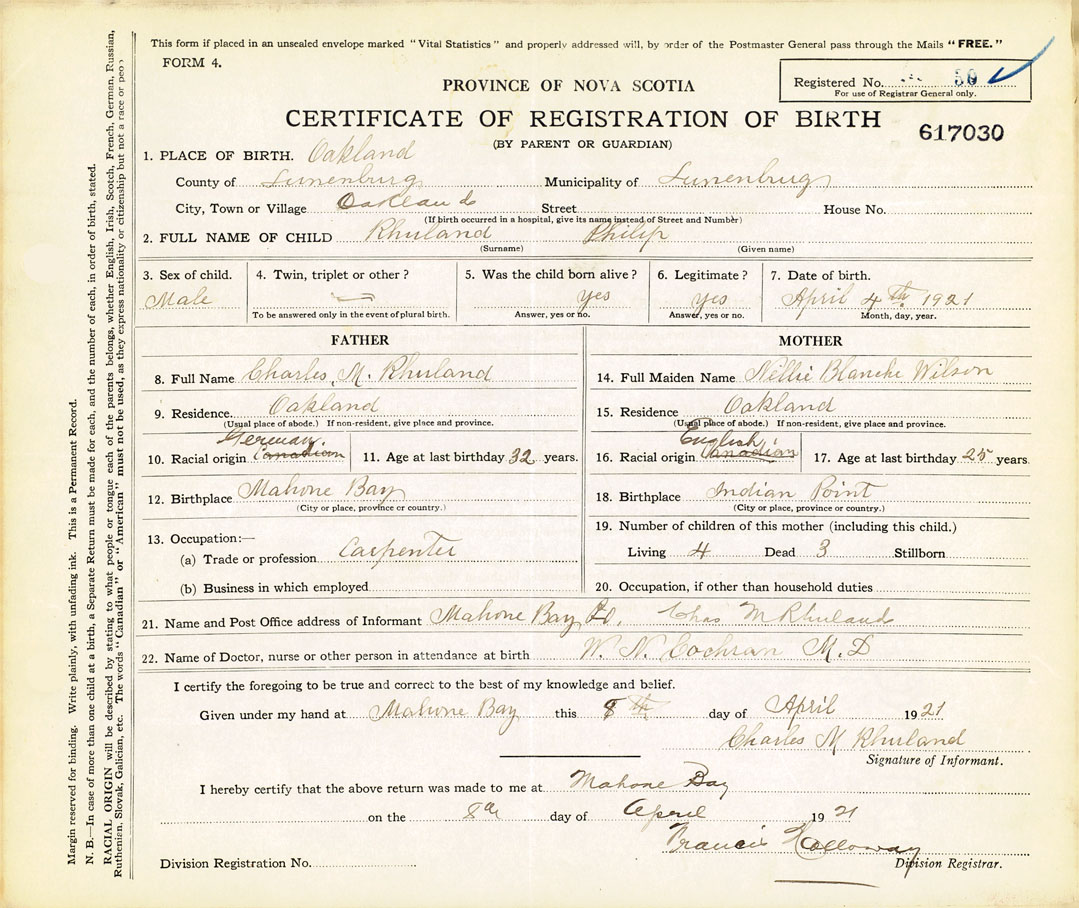 This form if placed in an unsealed envelope marked "Vital Statistics" and properly addressed will, by order of the Postmaster General pass through the Mails "FREE."
FORM 4.
Registered No. 50
For use of Registrar General only.
PROVINCE OF NOVA SCOTIA
CERTIFICATE OF REGISTRATION OF BIRTH
617030
(BY PARENT OR GUARDIAN)
1. PLACE OF BIRTH. Oakland
County of Lunenburg Municipality of Lunenburg
City, Town or Village Oakland Street House No.
(If birth occurred in a hospital, give its name instead of Street and Number)
2. FULL NAME OF CHILD Rhuland Philip
(Surname) (Given name)
3. Sex of child. 4. Twin, triplet or other? 5. Was the child born alive? 6. Legitimate? 7. Date of birth.
Male yes yes April 4th 1921
To be answered only in the event of plural birth. Answer, yes or no. Answer, yes or no. Month, day, year.
FATHER
8. Full Name Charles M. Rhuland
9. Residence. Oakland
(Usual place of abode.) If non-resident, give place and province.
German
10. Racial origin Canadian 11. Age at last birthday 32 years.
12. Birthplace Mahone Bay
(City or place, province or country.)
13. Occupation:—
(a) Trade or profession Carpenter
(b) Business in which employed
MOTHER
14. Full Maiden Name Nellie Blanche Wilson
15. Residence Oakland
(Usual place of abode.) If non-resident, give place and province.
English
16. Racial origin Canadian 17. Age at last birthday 25 years.
18. Birthplace Indian Point
(City or place, province or country.)
19. Number of children of this mother (including this child.)
Living 4 Dead 3 Stillborn
20. Occupation, if other than household duties
21. Name and Post Office address of Informant Mahone Bay Chas M Rhuland
22. Name of Doctor, nurse or other person in attendance at birth W. N. Cochran M.D
I certify the foregoing to be true and correct to the best of my knowledge and belief.
Given under my hand at Mahone Bay this 8th day of April 1921
Charles M Rhuland
Signature of Informant.
I hereby certify that the above return was made to me at Mahone Bay
on the 8th day of April 1921
Francis Holloway
Division Registration No. Division Registrar.
Margin reserved for binding. Write plainly, with unfading ink. This is a Permanent Record.
N. B.—In case of more than one child at a birth, a Separate Return must be made for each, and the number of each, in order of birth, stated.
RACIAL ORIGIN will be described by stating to what people or tongue each of the parents belongs, whether English, Irish, Scotch, French, German, Russian,
Ruthenian, Slovak, Galician, etc. The words "Canadian" or "American" must not be used, as they express nationality or citizenship but not a race or peo